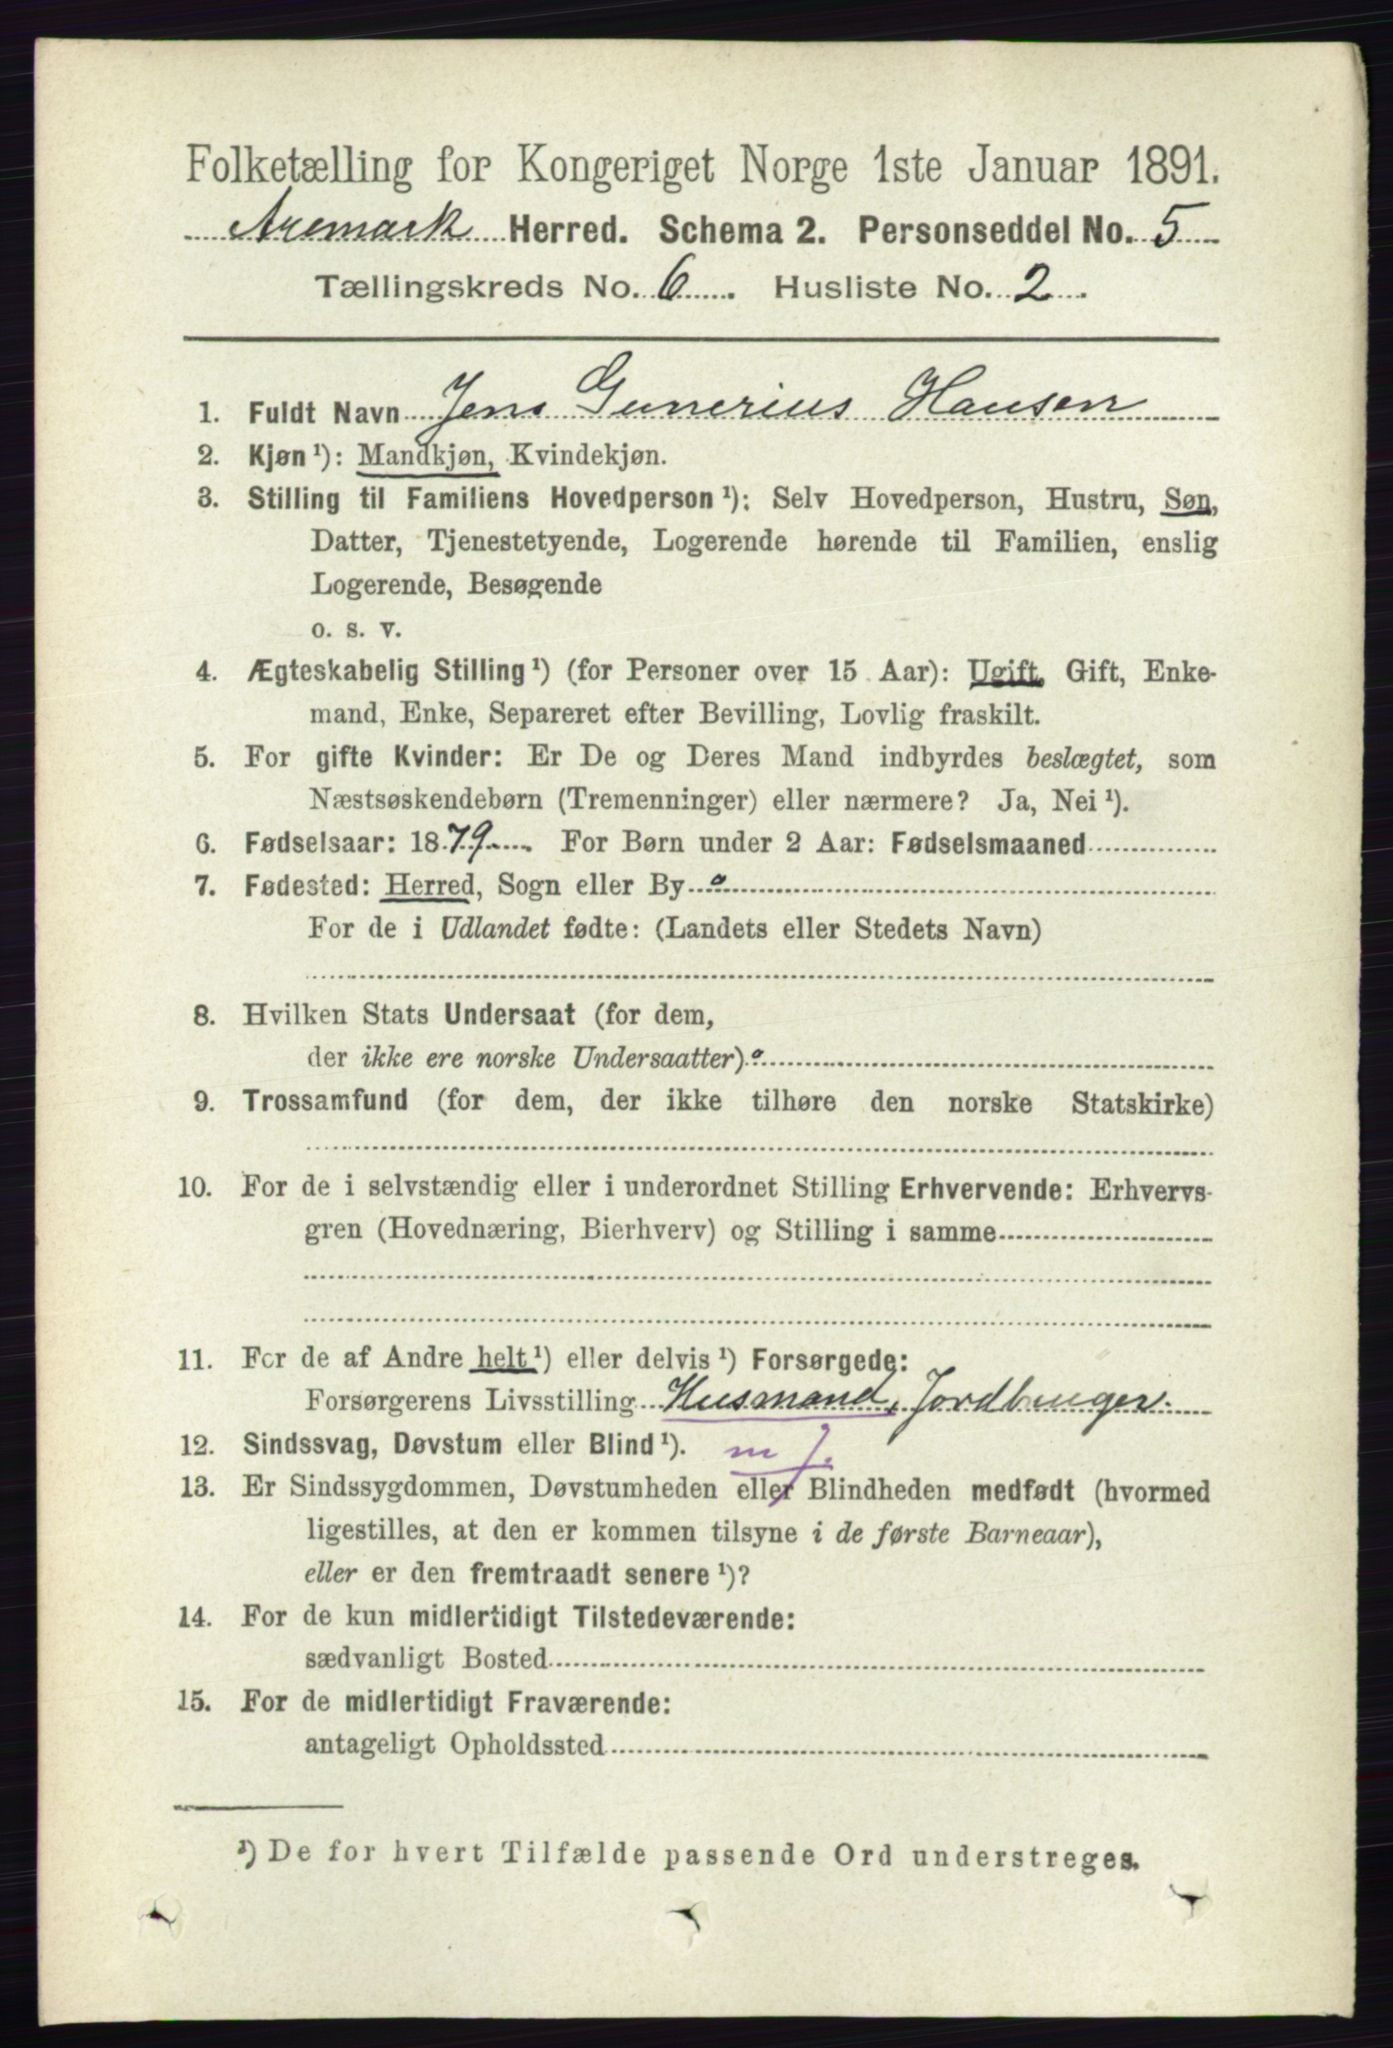 Folketælling for Kongeriget Norge 1ste Januar 1891.
Aremark Herred. Schema 2. Personseddel No. 5
Tællingskreds No. 6. Husliste No. 2.
1. Fuldt Navn Jens Gunerius Hansen
2. Kjøn ¹): Mandkjøn, Kvindekjøn.
3. Stilling til Familiens Hovedperson ¹): Selv Hovedperson, Hustru, Søn,
Datter, Tjenestetyende, Logerende hørende til Familien, enslig
Logerende, Besøgende
o. s. v.
4. Ægteskabelig Stilling ¹) (for Personer over 15 Aar): Ugift, Gift, Enke-
mand, Enke, Separeret efter Bevilling, Lovlig fraskilt.
5. For gifte Kvinder: Er De og Deres Mand indbyrdes beslægtet, som
Næstsøskendebørn (Tremenninger) eller nærmere? Ja, Nei ¹).
6. Fødselsaar: 1879. For Børn under 2 Aar: Fødselsmaaned
7. Fødested: Herred, Sogn eller By o
For de i Udlandet fødte: (Landets eller Stedets Navn)
8. Hvilken Stats Undersaat (for dem,
der ikke ere norske Undersaatter) o
9. Trossamfund (for dem, der ikke tilhøre den norske Statskirke)
10. For de i selvstændig eller i underordnet Stilling Erhvervende: Erhvervs-
gren (Hovednæring, Bierhverv) og Stilling i samme
11. For de af Andre helt ¹) eller delvis ¹) Forsørgede:
Forsørgerens Livsstilling Husmand, Jordbruger.
12. Sindssvag, Døvstum eller Blind ¹). m J.
13. Er Sindssygdommen, Døvstumheden eller Blindheden medfødt (hvormed
ligestilles, at den er kommen tilsyne i de første Barneaar),
eller er den fremtraadt senere ¹)?
14. For de kun midlertidigt Tilstedeværende:
sædvanligt Bosted
15. For de midlertidigt Fraværende:
antageligt Opholdssted
¹) De for hvert Tilfælde passende Ord understreges.